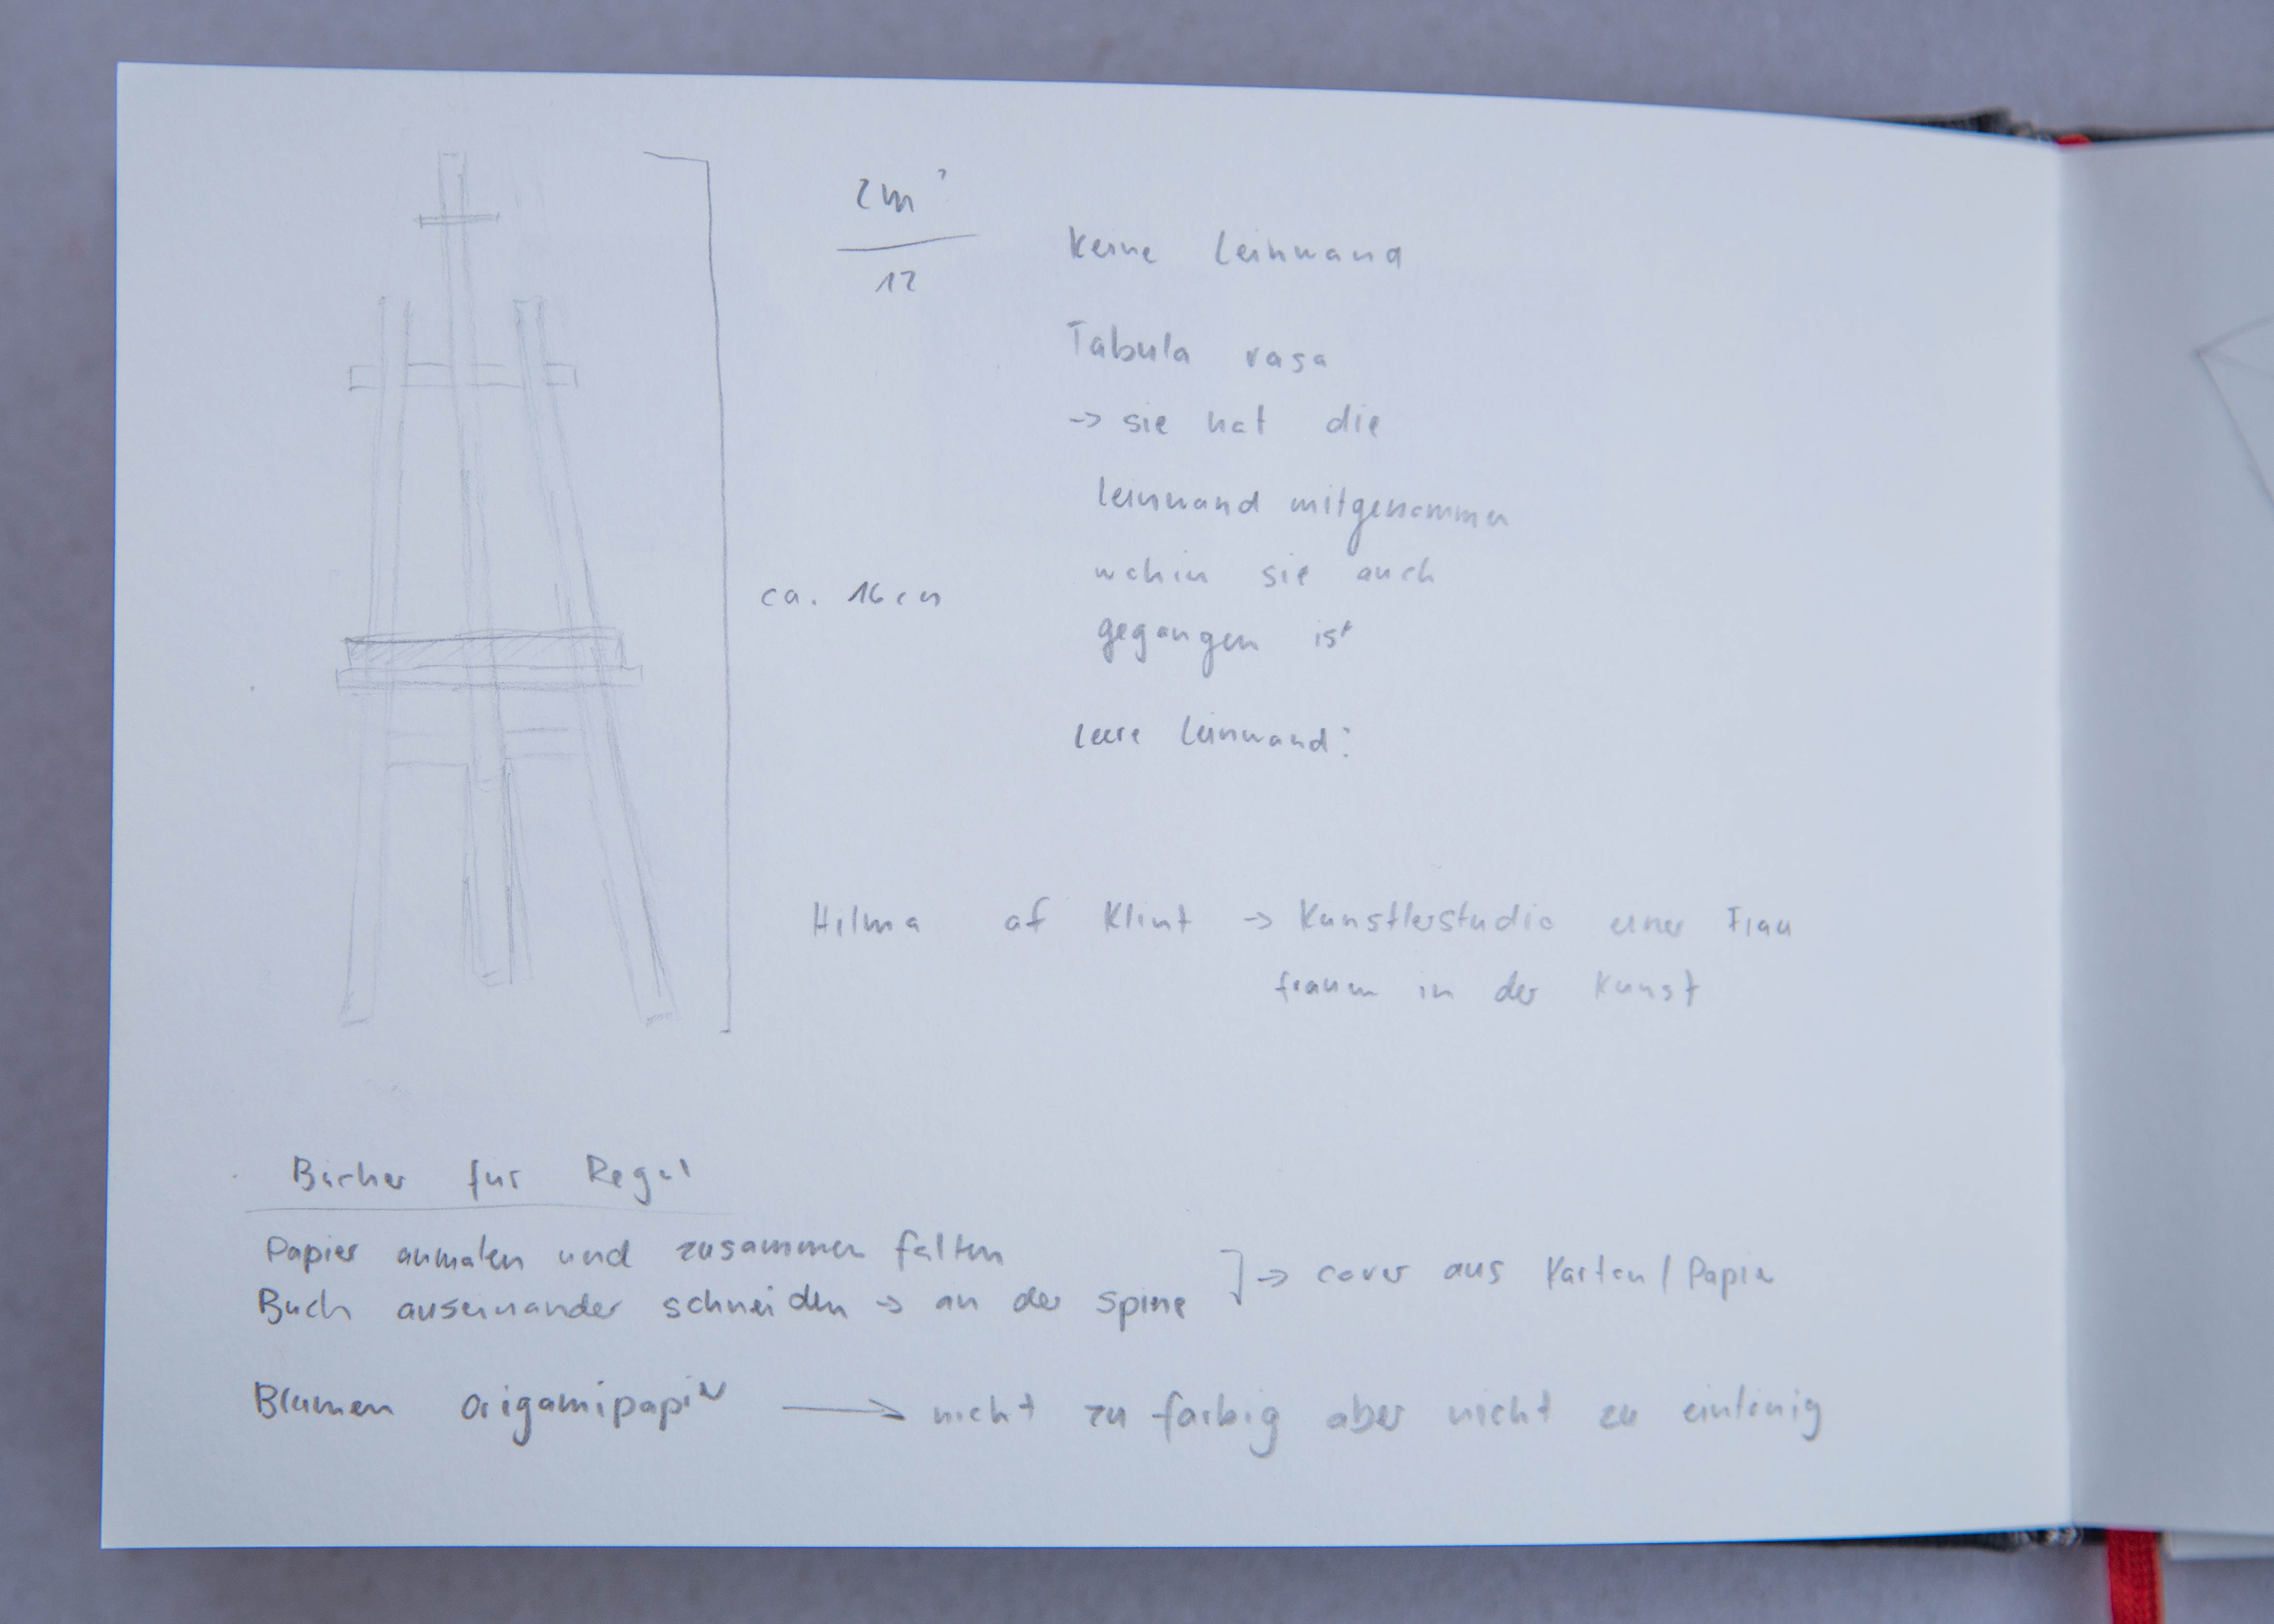 2m?
12
keine Leinwand
Tabula rasa
-> sie hat die
Leinwand mitgenommen
wohin sie auch
gegangen ist
leere Leinwand:
ca. 16cm
Hilma af Klint -> Künstlerstudio einer Frau
frauen in der Kunst
Bücher für Regal
Papier anmalen und zusammen falten
Buch auseinander schneiden -> an der spine
] -> cover aus Karton/Papier
Blumen origamipapier -> nicht zu farbig aber nicht zu eintönig